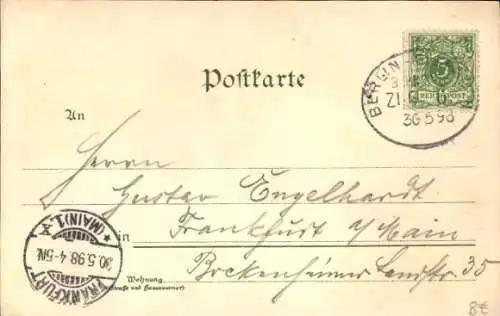 Postkarte
5
REICHSPOST
30 5 98
An
Herrn
Gustav Engelhardt
in Frankfurt a/Main
Wohnung
(Straße und Hausnummer)
Bockenheimer Landstr. 35
FRANKFURT (MAIN) 1
30.5.98.4-5N.
8€